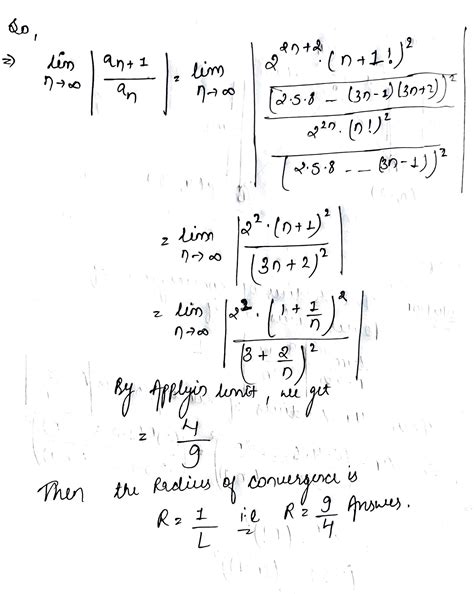 So,
⇒ lim n→∞ | a_{n+1} / a_n | = lim n→∞ | (2^{2n+2} · (n+1!)^2 / (2·5·8 - (3n-1)(3n+2))^2) / (2^{2n} · (n!)^2 / (2·5·8 - - (3n-1))^2) |
= lim n→∞ | 2^2 · (n+1)^2 / (3n+2)^2 |
= lim n→∞ | 2^2 · (1 + 1/n)^2 / (3 + 2/n)^2 |
By Applyin limit, we get
= 4/9
Then the Radius of convergence is
R = 1/L i.e R = 9/4 Answer.